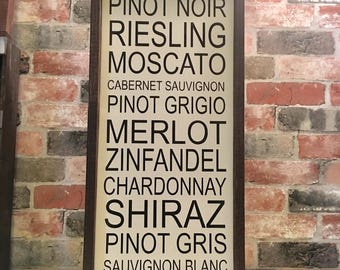 PINOT NOIR
RIESLING
MOSCATO
CABERNET SAUVIGNON
PINOT GRIGIO
MERLOT
ZINFANDEL
CHARDONNAY
SHIRAZ
PINOT GRIS
SAUVIGNON BLANC